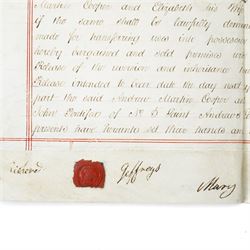 Martin Cooper and Elizabeth his Wife
of the same shall be lawfully deman
made for transferring uses into possession
hereby bargained and sold premises
Release of the reversion and inheritance
Release intended to bear date the day next
part the said Andrew Martin Cooper an
John Pontifex of St. Grant Andrew
presents have hereunto set their hands and
Jeffreys
Mary